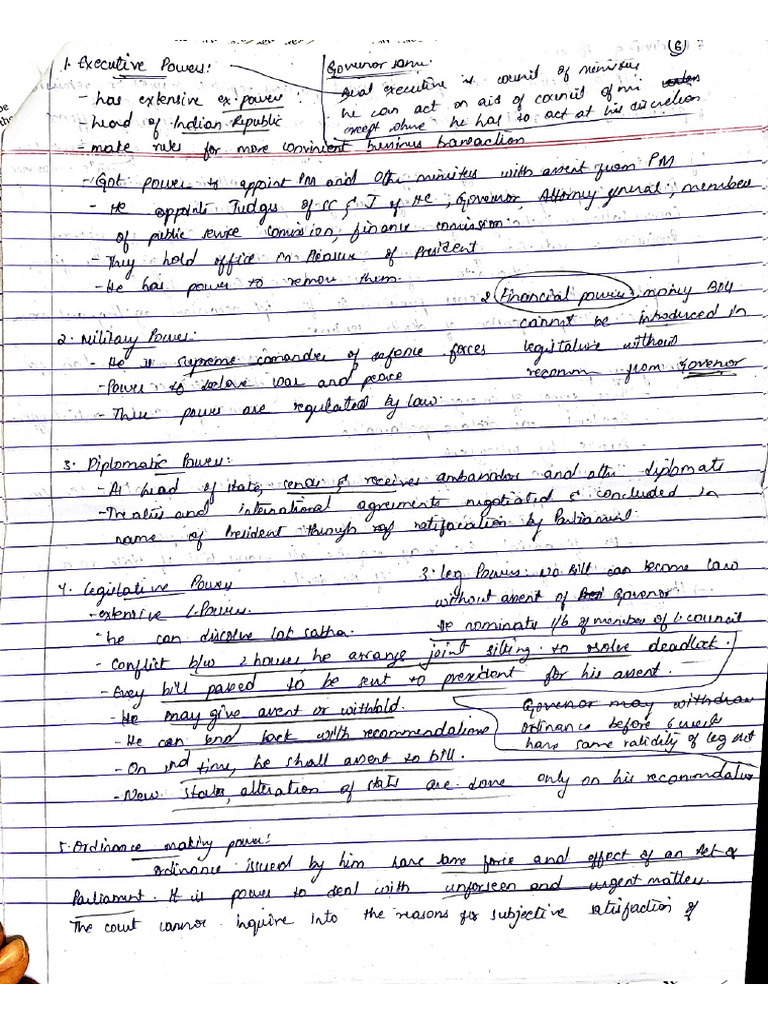 6
1. Executive Powers:
- has extensive ex. power
- head of Indian Republic
- make rules for more convinient business transaction
Governor same:
Real executive is council of ministers
he can act on aid of council of mi
except where he has to act at his discretion
- Got power to appoint PM and Othr ministers with assent from PM
- He appoints Judges of SC & J of HC, Governor, Attorney general, members
of public service comission, finance comission
- They hold office in Pleasure of President
- He has power to remove them.
2. Financial powers: money Bill
cannot be introduced in
legislature without
recomm from Governor
2. Military Power:
- He is supreme comander of defence forces
- Power to declare war and peace
- These power are regulated by law.
3. Diplomatic Power:
- As head of state, sends & receives ambassadors and othr diplomats
- Treaties and international agreements negotiated & concluded in
name of President through ratification by Parliament.
4. Legislative Power
- extensive L Power.
- he can disolve lok sabha.
3. Leg Powers: No Bill can become law
without assent of Governor.
He nominate 1/6 of member of L. council
- Conflict b/w 2 houses he arrange joint sitting to resolve deadlock.
- Every bill passed to be sent to president for his assent.
- He may give assent or withhold.
- He can send back with recommendations
- On 2nd time, he shall assent to bill.
- New states, alteration of stats are done only on his recomondation
Governor may withdraw
ordinance before 6 week
have same validity of leg act
5. Ordinance making power:
Ordinance issued by him have same force and effect of an Act of
Parliament. It is power to deal with unforseen and urgent matters.
The court cannot inquire into the reasons for subjective satisfaction of